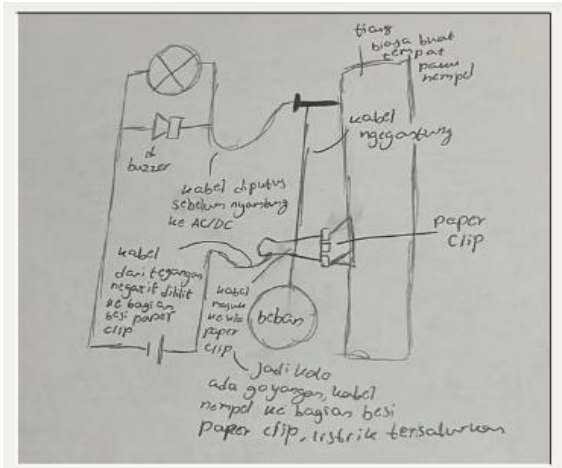 tiang
biasa buat
tempat
paku
nempel
kabel
ngegantung
buzzer
kabel diputus
sebelum nyambung
ke AC/DC
paper
clip
kabel
dari tegangan
negatif dililit
ke bagian
besi paper
clip
kabel
masuk
paper
clip
beban
jadi kalo
ada goyangan, kabel
nempel ke bagian besi
paper clip, listrik tersalurkan